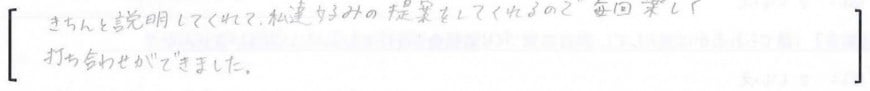 きちんと説明してくれて、私達好みの提案をしてくれるので毎回楽しく
打ち合わせができました。